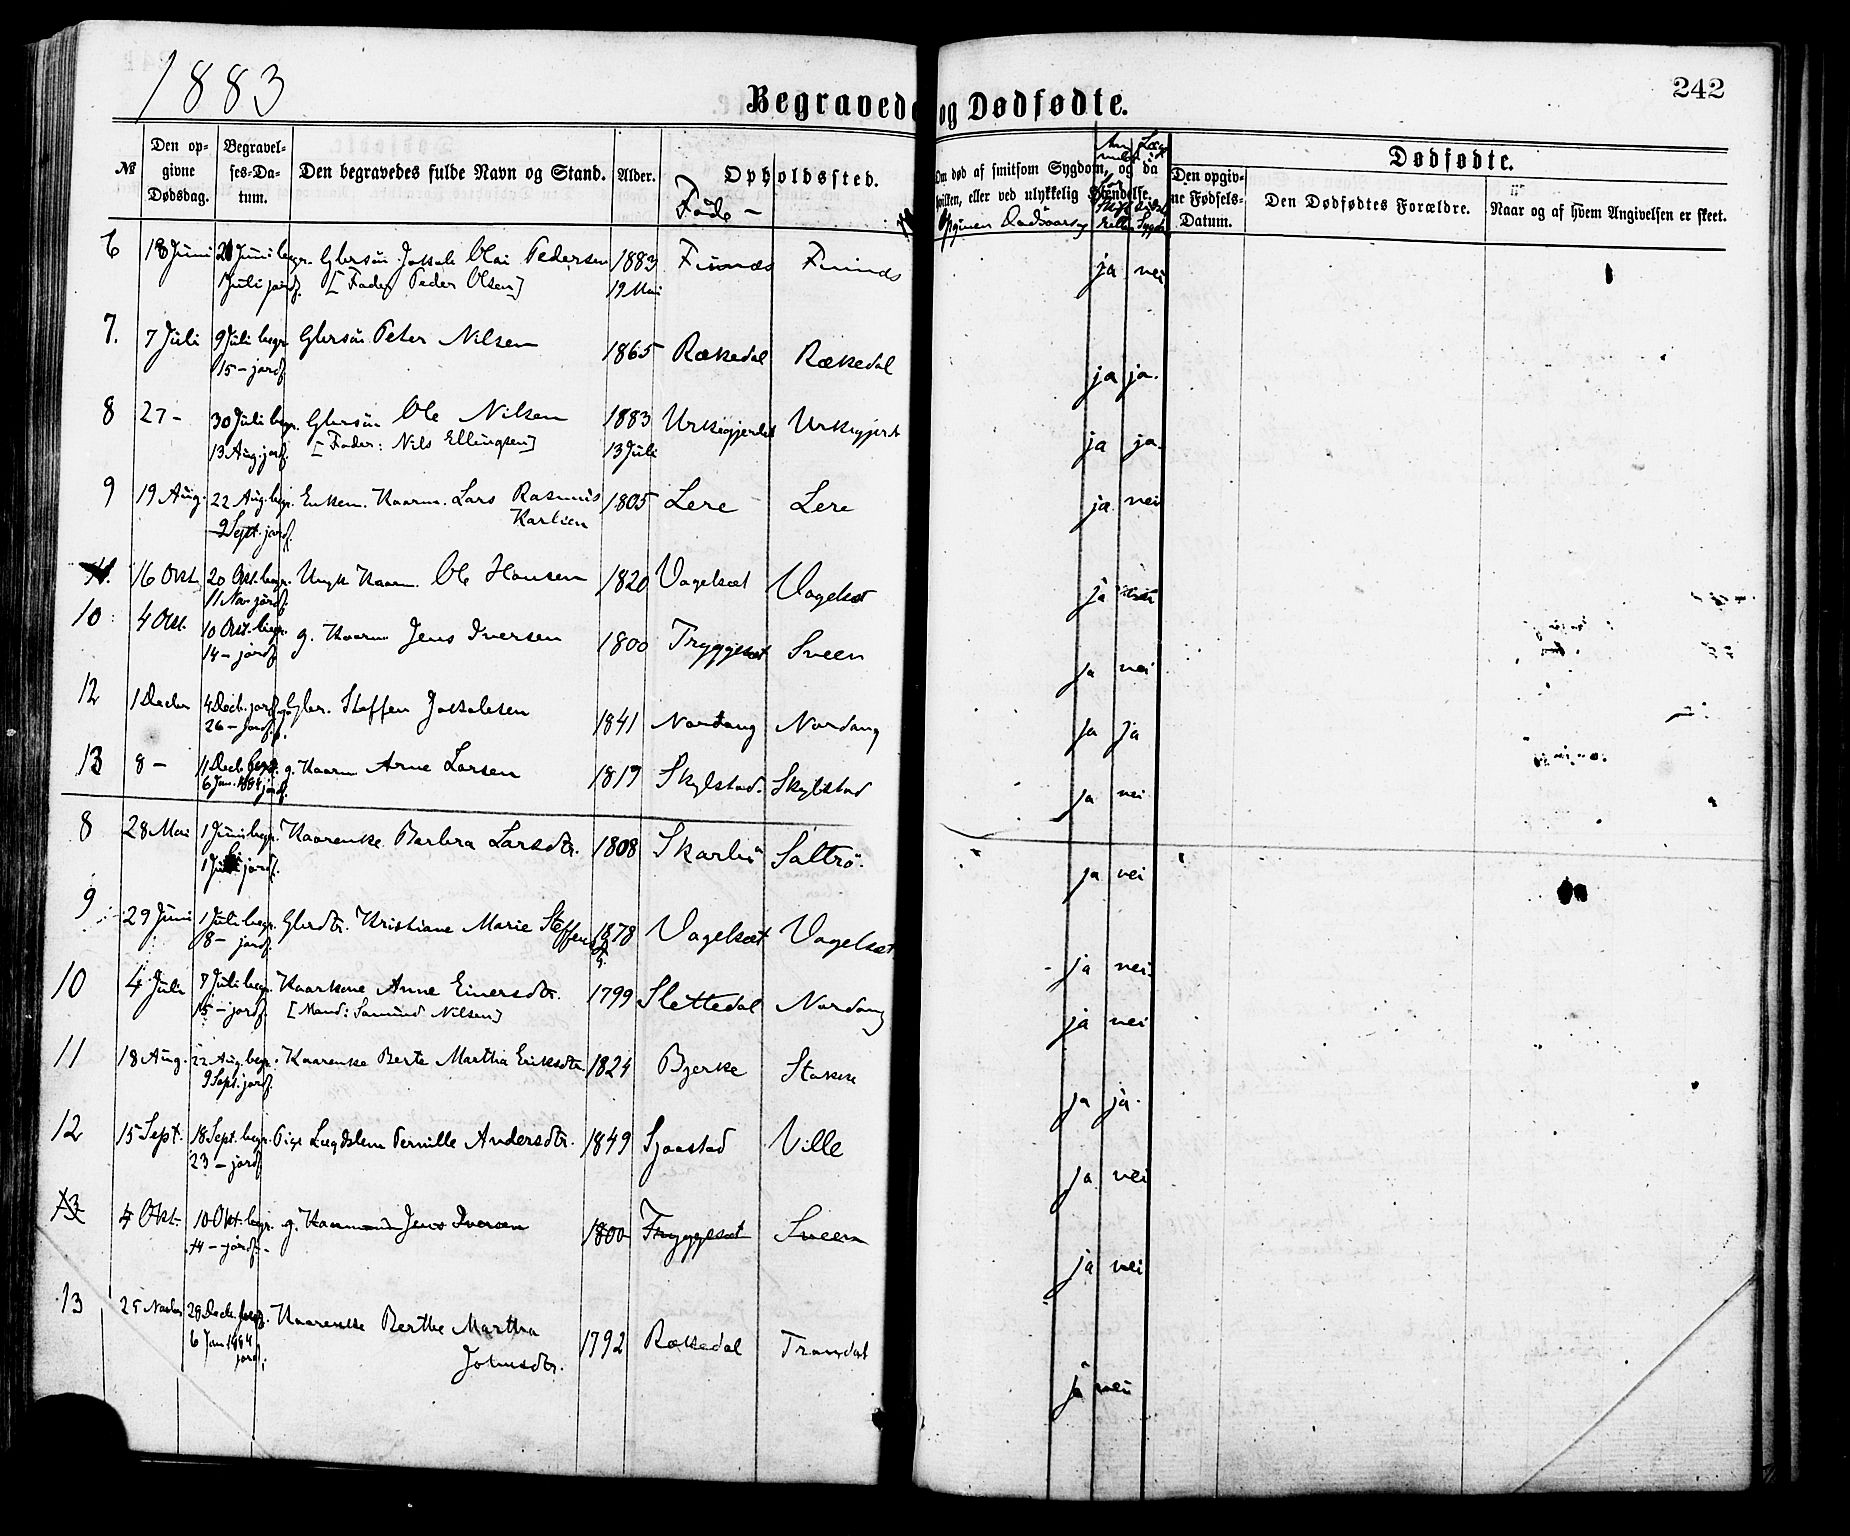 1883
Begravede og Dødfødte.
242
№ | Den opgivne Dødsdag. | Begravelses-Datum. | Den begravedes fulde Navn og Stand. | Alder. | Opholdssted. | Om død af smitsom Sygdom, og da hvilken, eller ved ulykkelig Hændelse. | Dødfødte.
Den opgivne Fødsels-Datum. | Den Dødfødtes Forældre. | Naar og af hvem Angivelsen er skeet.
Føde- | Opgiven Dødsaarsag
6 | 18 Juni | 21 Juni begr. | Glersøn Jakob Olai Pedersen | 1883 | Finnes | Finnes | ja | nei
1 Juli jordf. | [Fader Peder Olsen] | 19 Mai
7. | 7 Juli | 9 Juli begr. | Glersøn Peter Nilsen | 1865 | Rækedal | Rækedal | ja | ja.
15 – jordf.
8 | 27 – | 30 Juli begr. | Glersøn Ole Nilsen | 1883 | Urkegjerdet | Urkegjerdt | ja | ja.
13 Aug. jordf. | [Fader: Nils Ellingsen] | 13 Juli
9 | 19 Aug. | 22 Aug. begr. | Enkem. Kaarm. Lars Rasmus | 1805 | Lere | Lere | ja | nei
9 Sept. jordf. | Karlien
11. | 16 Okt. | 20 Okt. begr. | Ungk. Kaarm. Ole Hansen | 1820 | Vagelsæt | Vagelsæt | ja | nei
11 Nov. jordf.
10 | 4 Okt. | 10 Okt. begr. | g. Kaarm Jens Iversen | 1800 | Tryggesæt | Sveen | ja | nei
14 – jordf.
12 | 1 Decbr | 4 Decb. jordf. | Gbr. Steffen Jakobsen | 1841 | Nordang | Nordang | ja | ja
26 – jordf.
13 | 8 – | 11 Decb. begr. | g. Kaarm Arne Larsen | 1819 | Skylstad. | Skylstad | ja | nei
6 Jan. 1884 jordf.
8 | 28 Mai | 1 Juni begr. | Kaarenke Barbra Larsdtr. | 1808 | Skarbø | Saltrø. | ja | nei
1 Juli jordf.
9 | 29 Juni | 1 Juli begr. | Glerdtr. Kristiane Marie Steffensdtr. | 1878 | Vagelsæt | Vagelsæt | ja | nei.
8 – jordf.
10 | 4 Juli | 7 Juli begr. | Kaarkone Anne Einersdtr. | 1799 | Slettedal | Nordang | ja | nei
15 – jordf. | [Mand: Samund Nilsen]
11 | 18 Aug. | 22 Aug. begr. | Kaarenke Berte Martha Eriksdtr | 1824 | Bjerke | Stokke | ja | ja.
9 Sept. jordf.
12 | 15 Sept. | 18 Sept. begr. | Pige Lægdslem Pernille Andersdtr. | 1849 | Sjaastad | Ville | ja | nei
23 – jordf.
13 | 4 Okt. | 10 Okt. begr. | g. Kaarmand Jens Iversen | 1800 | Tryggesæt | Sveen | ja | nei
14 – jordf.
13 | 25 Novbr | Decb. | Kaarenke Berthe Martha | 1792 | Rækedal | Trandal | ja | nei
6 Jan 1884 jordf. | Johnsdtr.